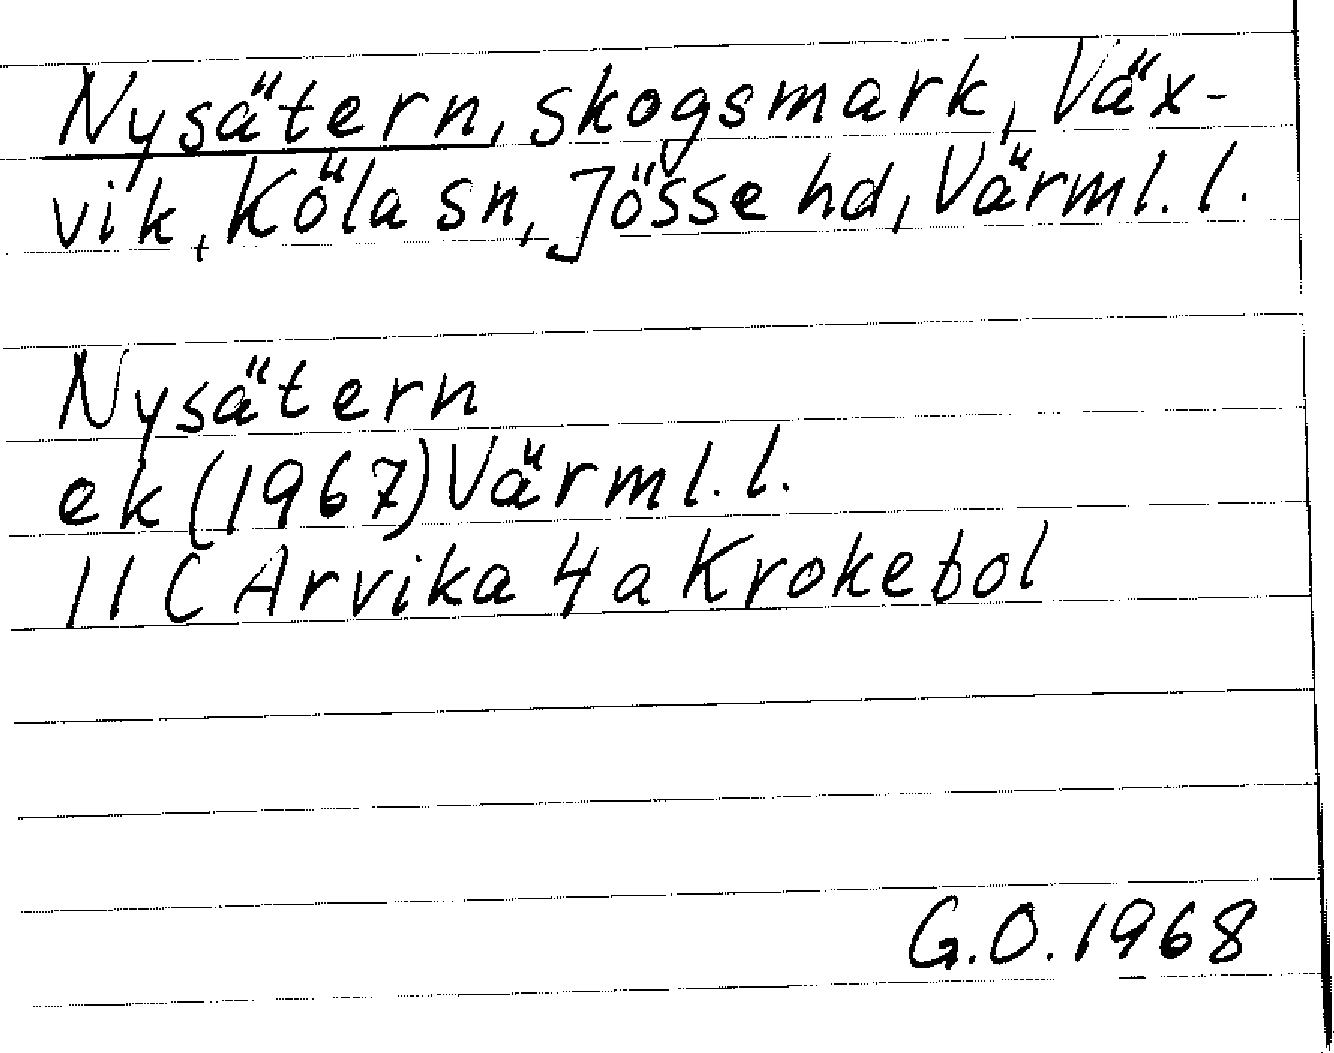 Nysätern, skogsmark, Väx-
vik, Köla sn, Jösse hd, Värml. l.
Nysätern
ek (1967) Värml. l.
11 C Arvika 4a Krokebol
G.O. 1968